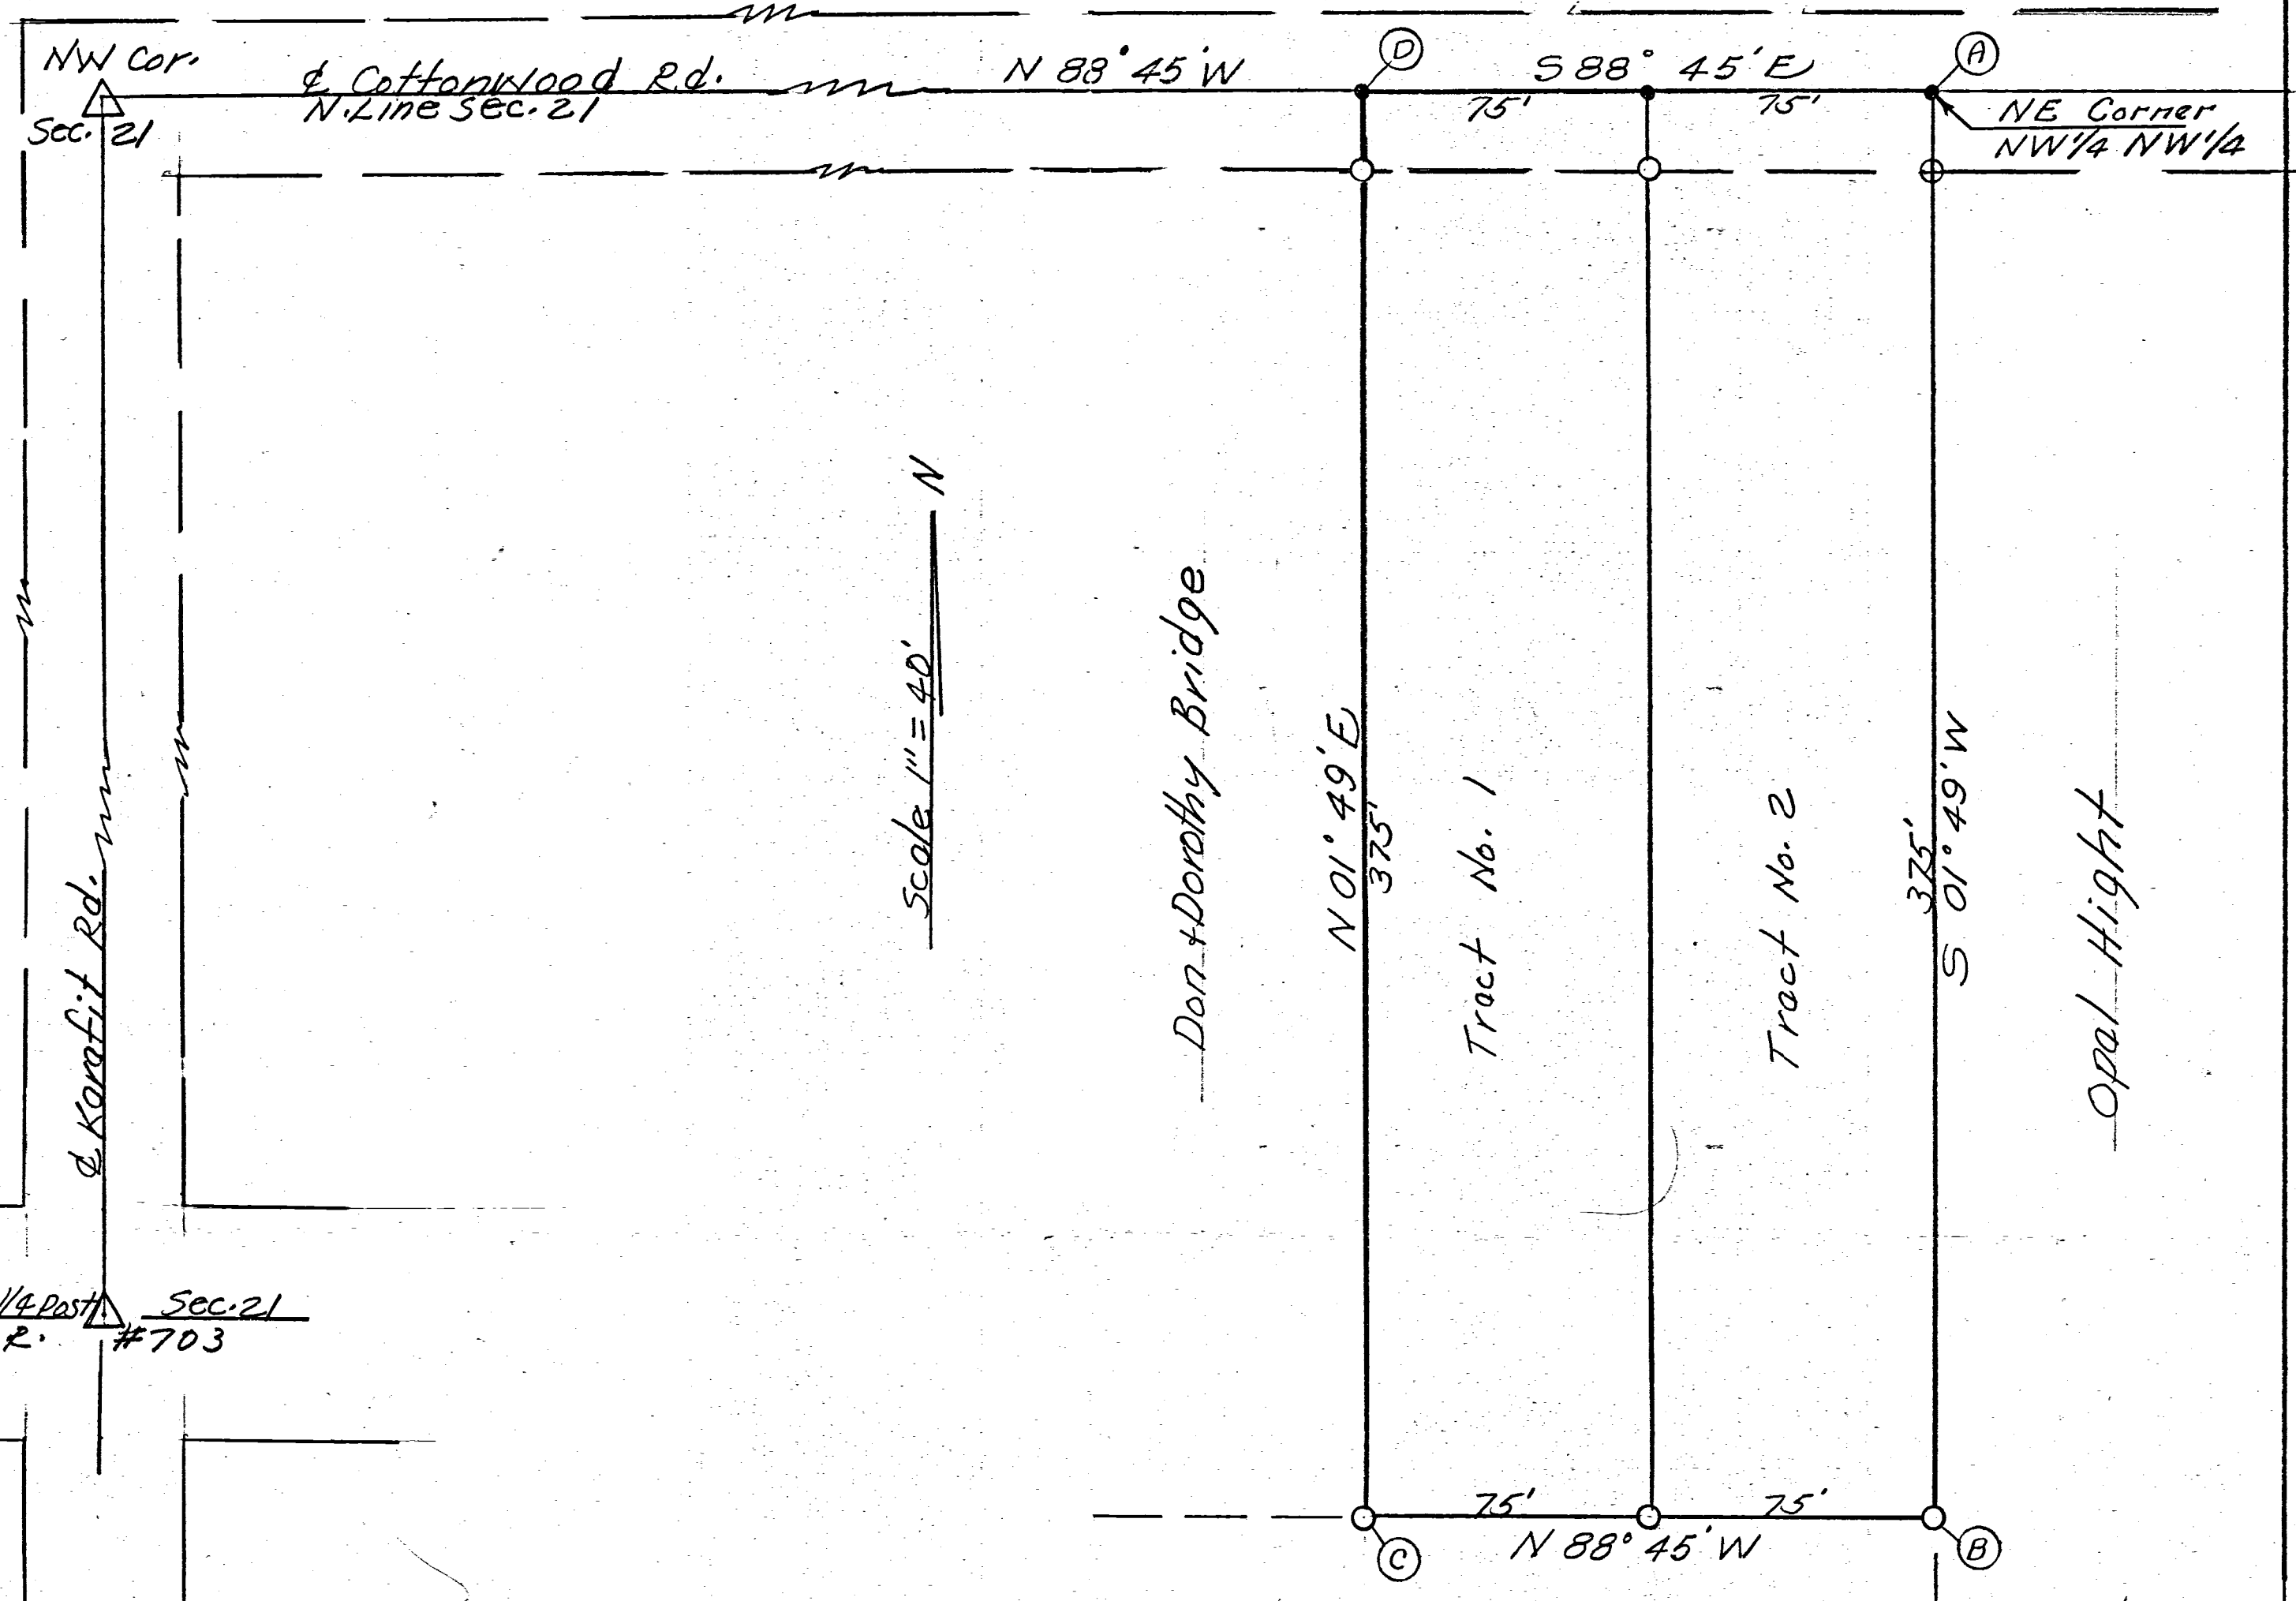 NW Cor.
Sec. 21
℄ Cottonwood Rd.
N. Line Sec. 21
N 88° 45' W
D
S 88° 45' E
75'
75'
A
NE Corner
NW 1/4 NW 1/4
N
Scale 1" = 40'
Don + Dorothy Bridge
N 01° 49' E
375'
Tract No. 1
Tract No. 2
375'
S 01° 49' W
Opal Hight
℄ Korafit Rd.
1/4 Post
Sec. 21
R.
#703
75'
75'
N 88° 45' W
C
B